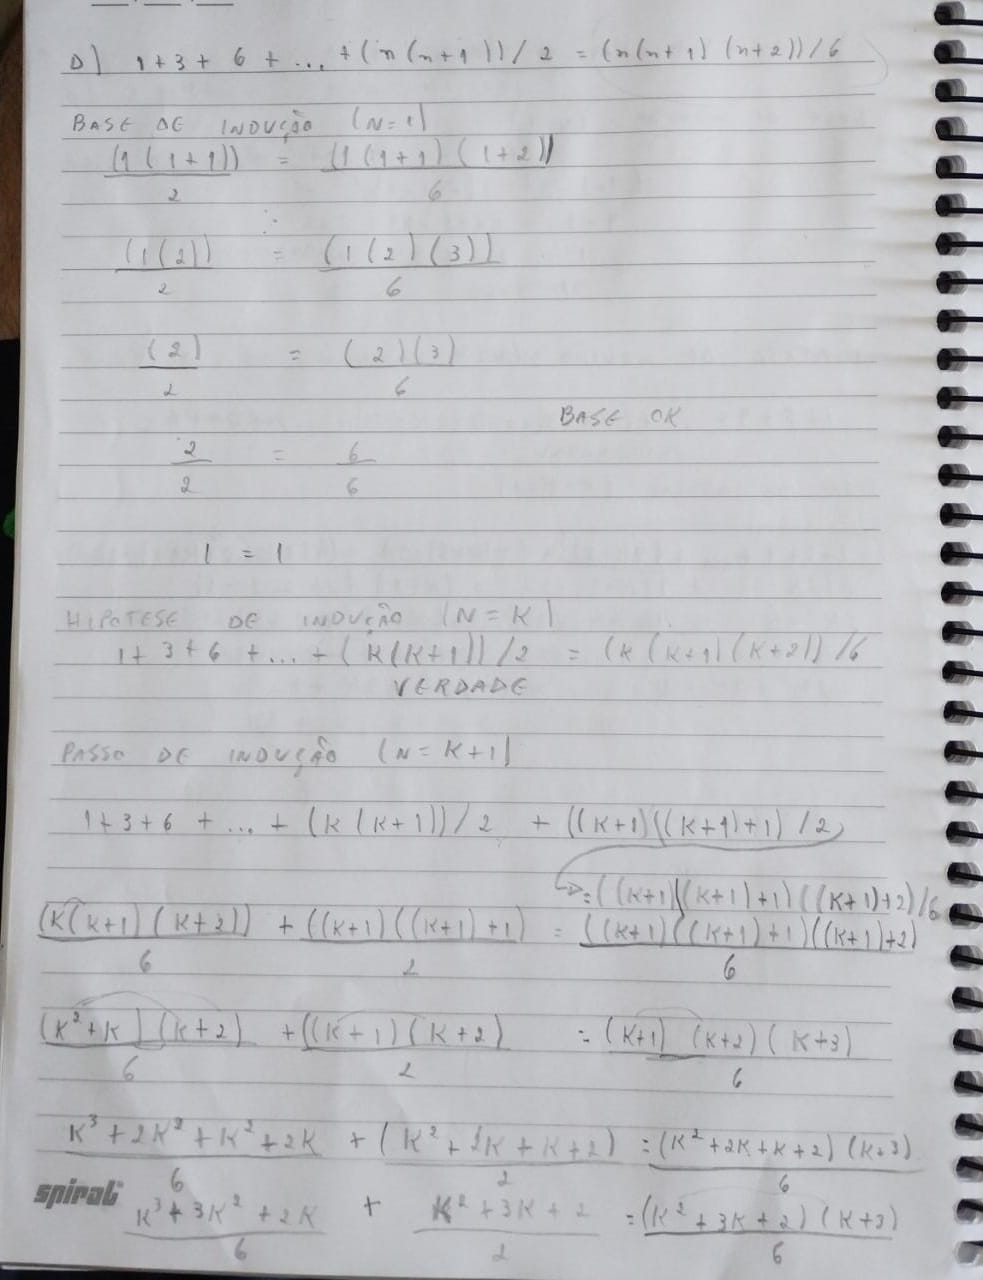 D) 1+3+6+...+(n(n+1))/2 = (n(n+1)(n+2))/6
BASE DE INDUÇÃO (N=1)
(1(1+1))/2 = (1(1+1)(1+2))/6
∴
(1(2))/2 = (1(2)(3))/6
(2)/2 = (2)(3)/6
BASE OK
2/2 = 6/6
1 = 1
HIPOTESE DE INDUÇÃO (N=K)
1+3+6+...+(K(K+1))/2 = (K(K+1)(K+2))/6
VERDADE
PASSO DE INDUÇÃO (N=K+1)
1+3+6+...+(K(K+1))/2 + ((K+1)((K+1)+1)/2
=((K+1)((K+1)+1)((K+1)+2)/6
(K(K+1)(K+2))/6 + ((K+1)((K+1)+1)/2 = ((K+1)((K+1)+1)((K+1)+2)/6
(K²+K)(K+2)/6 + ((K+1)(K+2)/2 = (K+1)(K+2)(K+3)/6
K³+2K²+K²+2K/6 + (K²+2K+K+2)/2 = (K²+2K+K+2)(K+3)/6
spiral
K³+3K²+2K/6 + K²+3K+2/2 = (K²+3K+2)(K+3)/6